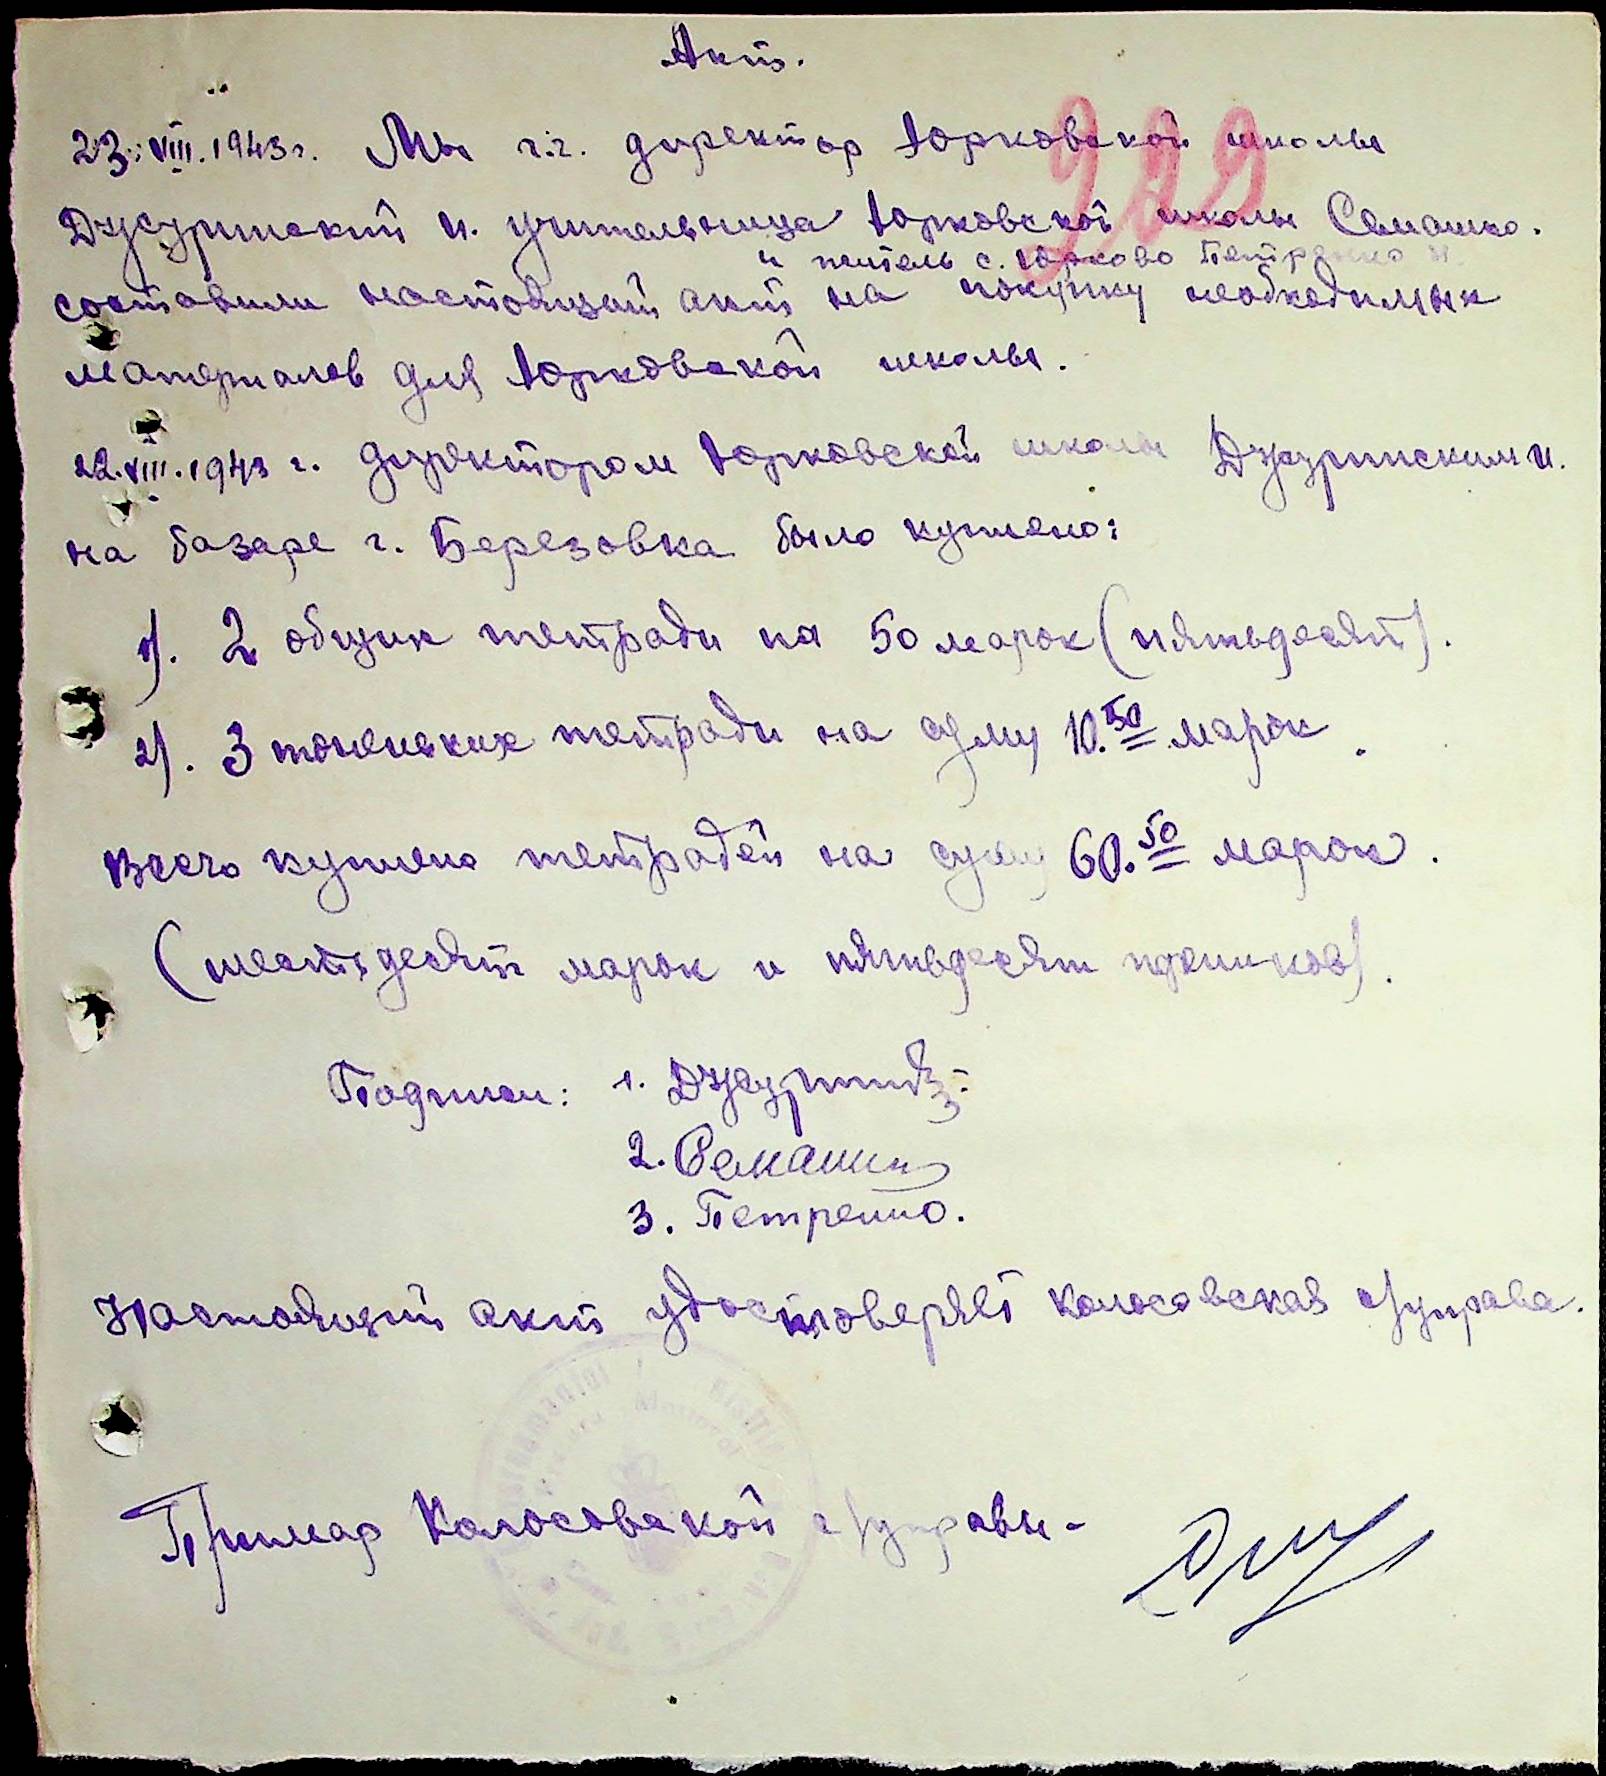 Акт.
229
23. VIII. 1943 г. Мы г.г. директор Юрковской школы
Джуринский и. учительница Юрковской школы Семашко.
и житель с. Юрково Петренко И.
составили настоящий акт на покупку необходимых
материалов для Юрковской школы.
22. VIII. 1943 г. директором Юрковской школы Джуринским и.
на базаре г. Березовка было куплено:
1). 2 общих тетради на 50 марок (пятьдесят).
2). 3 тоненьких тетради на суму 10.50 марок.
Всего куплено тетрадей на суму 60.50 марок.
(шестьдесят марок и пятьдесят пфенигов).
Подписи: 1. Джурин
2. Семашко
3. Петренко.
Настоящий акт удостоверяет Колосовская с/управа.
Примар Колосовской с/управы -